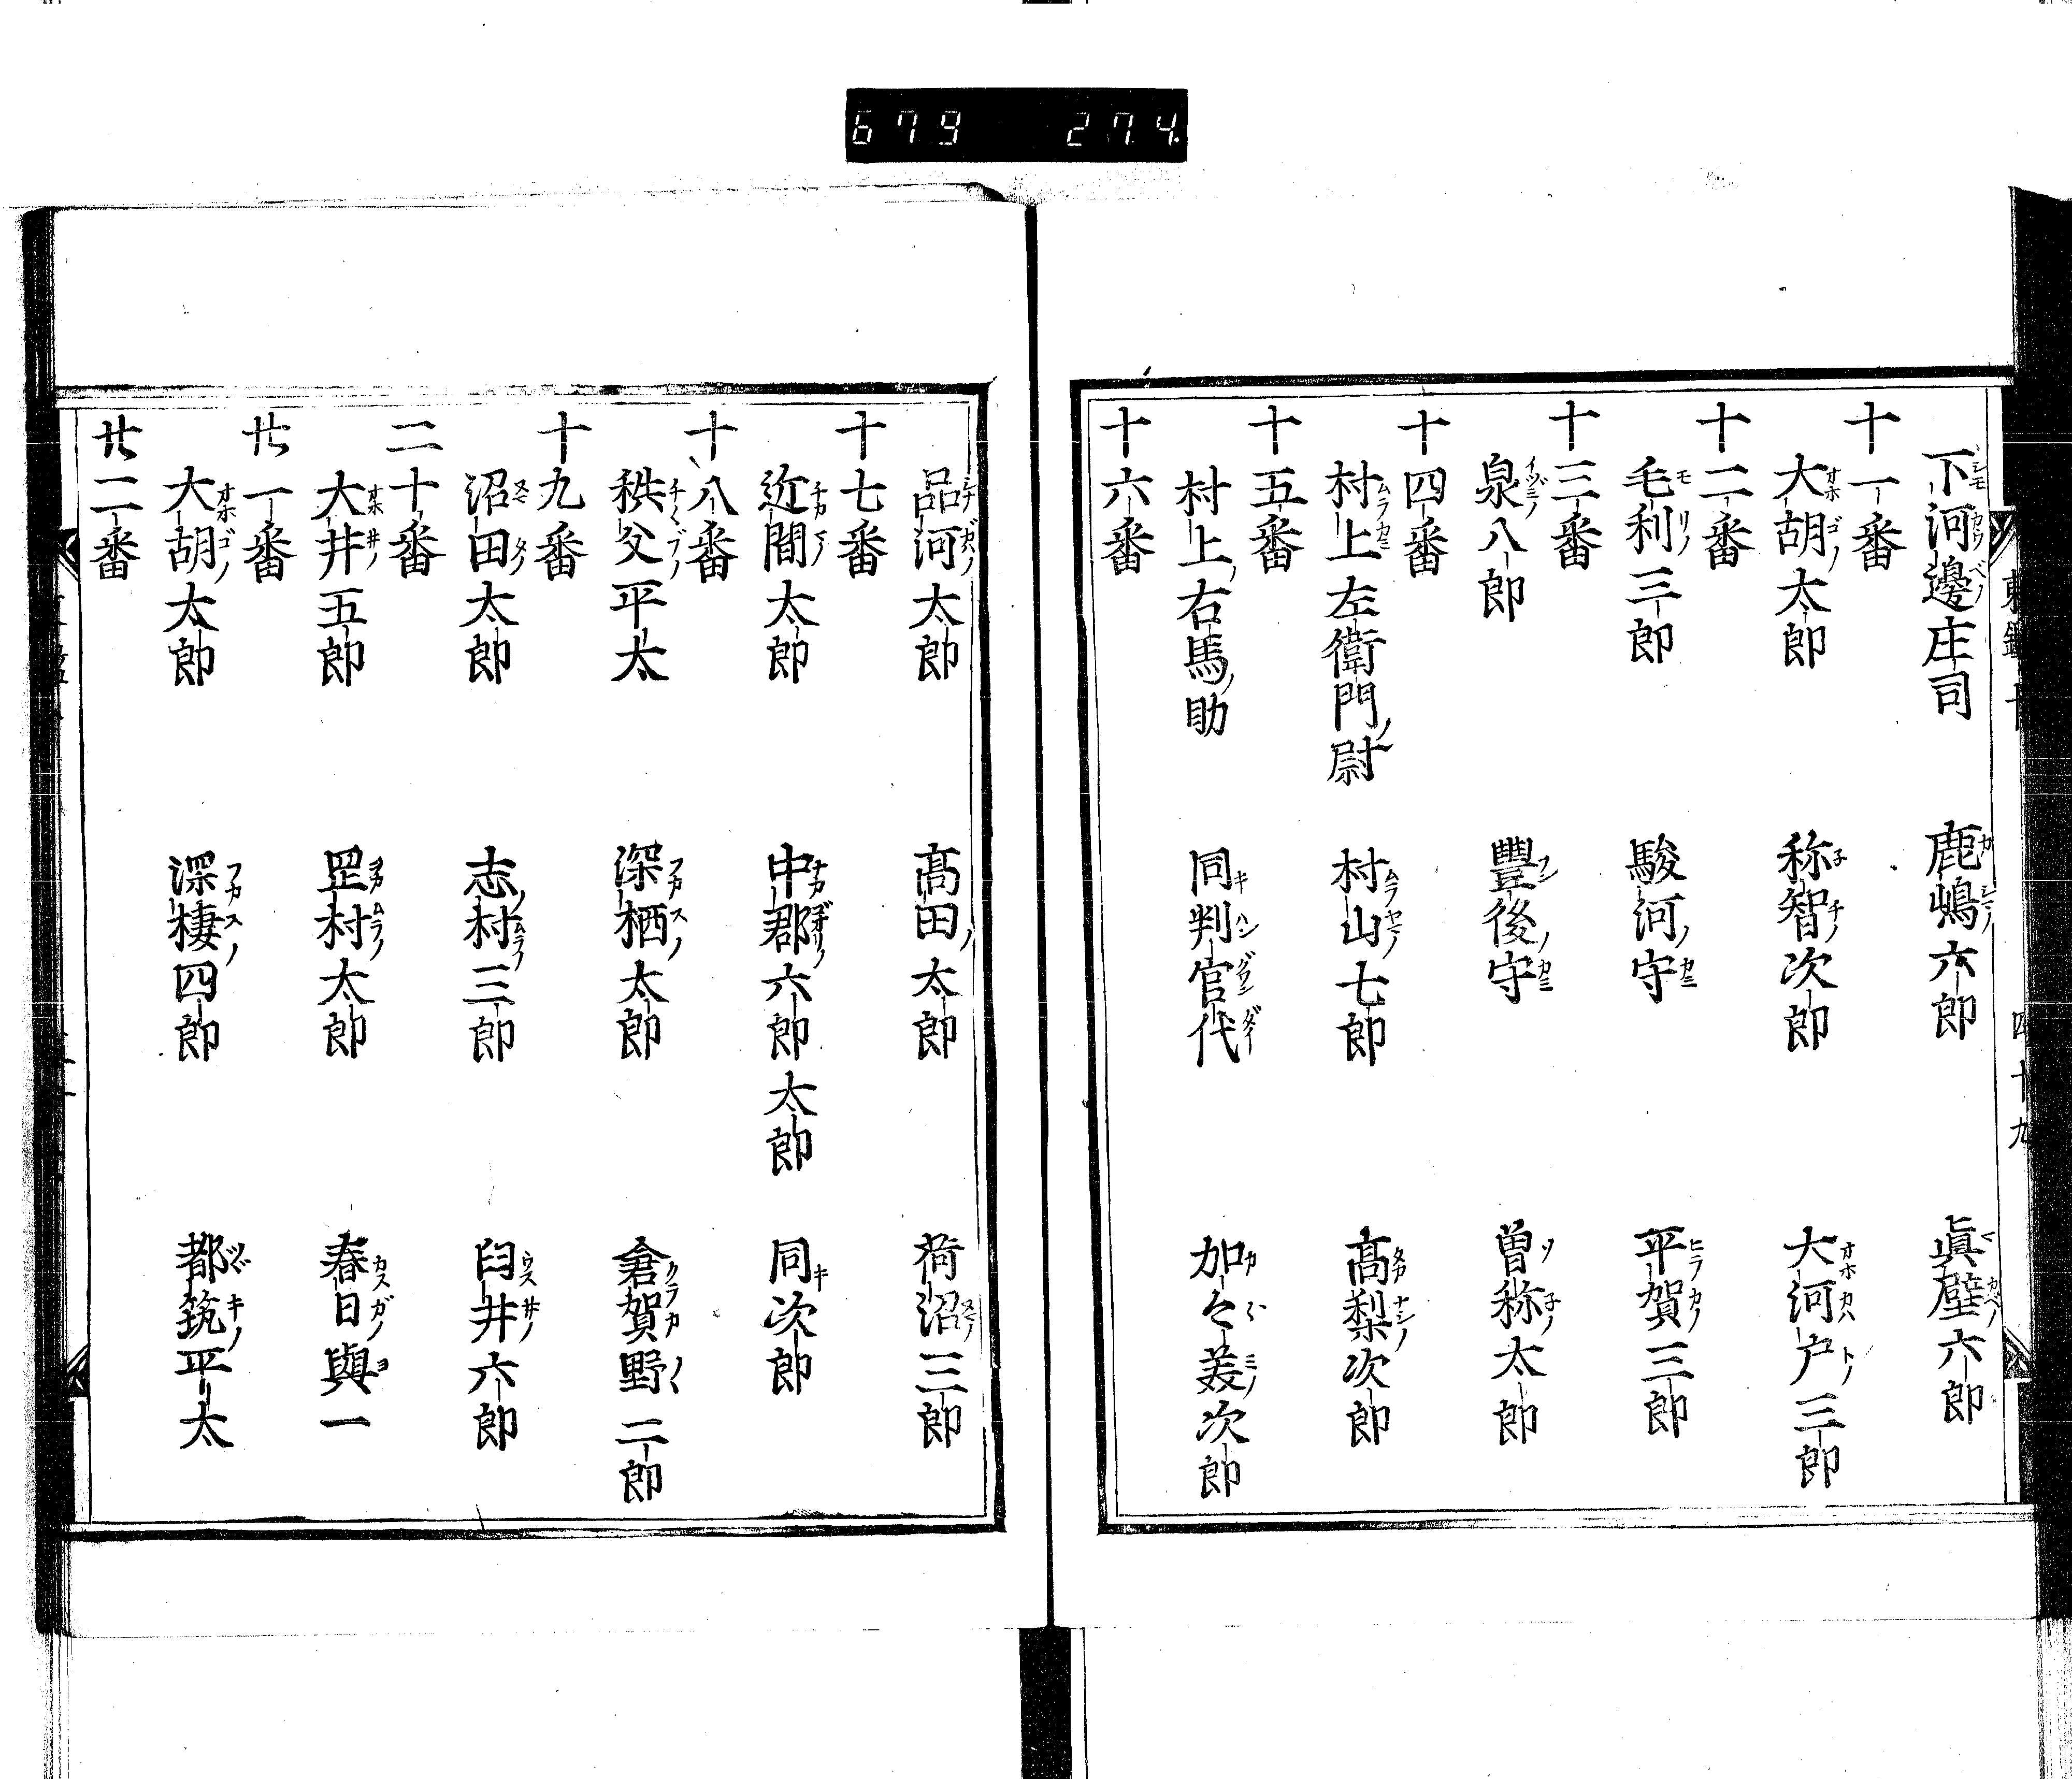 679 274
下河邊庄司 鹿嶋六郎 眞壁六郎
十一番
大胡太郎 称智次郎 大河戸三郎
十二番
毛利三郎 駿河守 平賀三郎
十三番
泉八郎 豐後守 曽称太郎
十四番
村上左衛門尉 村山七郎 髙梨次郎
十五番
村上右馬助 同判官代 加々美次郎
十六番
品河太郎 髙田太郎 荷沼三郎
十七番
近間太郎 中郡六郎太郎 同次郎
十八番
秩父平太 深栖太郎 倉賀野二郎
十九番
沼田太郎 志村三郎 臼井六郎
二十番
大井五郎 罡村太郎 春日與一
廿一番
大胡太郎 深棲四郎 都筑平太
廿二番